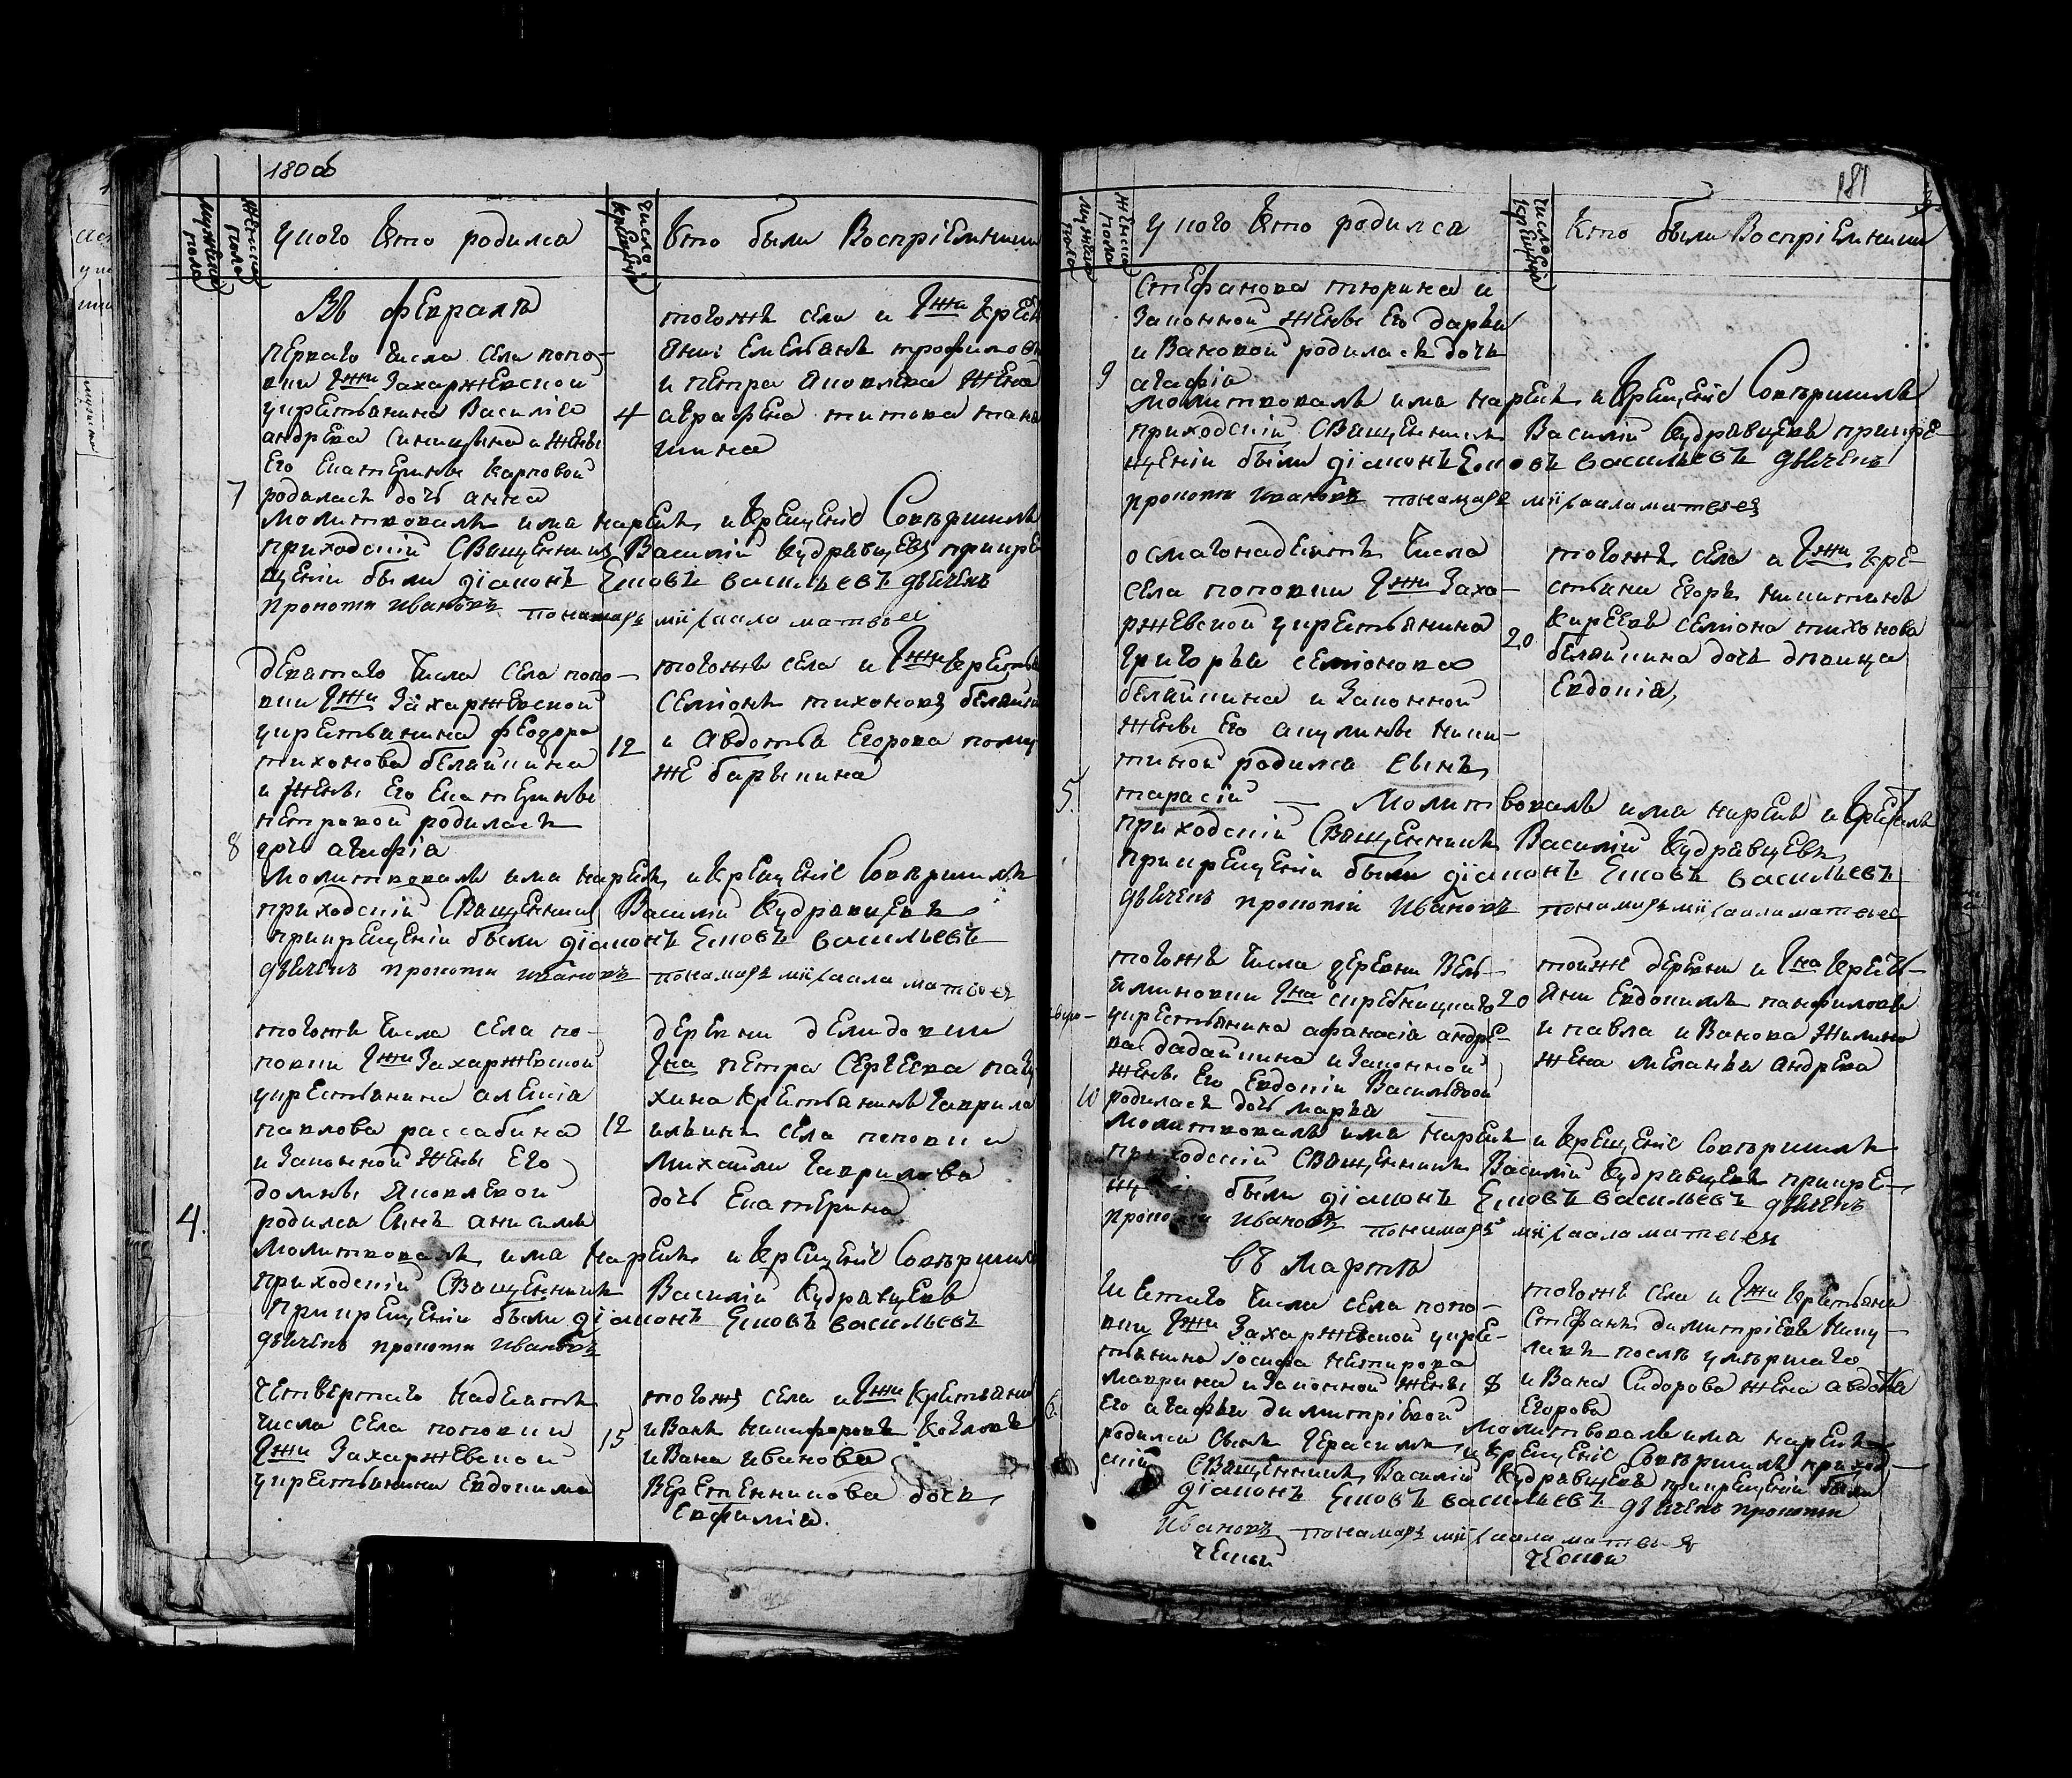 1806
Мужеска пола
Женска пола
у кого кто родился
число крещения
кто были восприемники
Въ февралѣ
перваго числа села попо-
вки Гжи Захаржевской
укрестьянина Василиа
андреева синицына и женѣ
Его Екатеринѣ карповой
7
родилась дочь анна
4
тогожъ села и Гжи крест
янинъ Емельянъ трофимовъ
и петра Яковлева жена
аграфена титова
молитвовалъ имя нарекъ и крещеніе Совершилъ
приходскій Священникъ Василій Кудрявцевъ прикре
щеніи были діаконъ Яковъ васильевъ дьячекъ
прокопи Ивановъ понамарь михаила матвеев
девятаго числа села попо-
вки Гжи Захаржевской
укрестьянина феодора
тихонова беляйкина
и женѣ Его Екатеринѣ
петровой родилась
8
дочь агафіа
12
тогожъ села и Гжи крестья
Семіонъ тихоновъ беляйки
и Авдотья Егорова пому
же барыкина
Молитвовалъ имя нарекъ и крещеніе Совершилъ
приходскій Священникъ Василій Кудрявцевъ
прикрещеніи были діаконъ Яковъ васильевъ
дьячекъ прокопи ивановъ понамарь михаила матвеев
тогожъ числа села по-
повки Гжи Захаржевской
укрестьянина алексіа
павлова рассабина
и Законной женѣ Его
домнѣ Яковлевой
4.
родился Сынъ анисимъ
12
деревни демидовки
Гна петра Сергеева
крестьянинъ гаврила
ильинъ села поповки
Михайлы гаврилова
дочь Екатерина
Молитвовалъ имя нарекъ и крещеніе Совершилъ
приходскій Священникъ Василій Кудрявцевъ
прикрещеніи были діаконъ Яковъ васильевъ
дьячекъ прокопи ивановъ
четвертаго надесять
числа села поповки
Гжи Захаржевской
укрестьянина Евдокима
15
тогожъ села и Гжи крестьяни
иванъ никифоровъ Козловъ
ивана иванова
Веретенникова дочь
Евфимиа.
181
Мужеска пола
Женска пола
у кого кто родился
число крещения
Кто были Восприемники
Стефанова тюрина и
Законной женѣ Его дарьи
ивановой родилась дочь
9
агафіа
молитвовалъ имя нарекъ и крещеніе Совершилъ
приходскій Священникъ Василій Кудрявцевъ прикре-
щеніи были діаконъ Яковъ васильевъ дьячекъ
прокопи ивановъ понамарь михаила матвеев
осмагонадесять числа
села поповки Гжи Заха-
ржевской укрестьянина
григорьи семіонова
беляйкина и Законной
женѣ Его акулинѣ ники-
тиной родился Сынъ
5.
тарасій
20
тогожъ села и Гжи кре-
стьяни Егоръ никитинъ
Киреевъ семіона тихонова
беляйкина дочь дѣвица
Евдокіа
Молитвовалъ имя нарекъ и крестилъ
приходскій Священникъ Василій Кудрявцевъ
прикрещеніи были діаконъ Яковъ васильевъ
дьячекъ прокопій ивановъ понамарь михаила матвеев
тогожъ числа деревни Вель-
яминовки Гна скребницкаго
укрестьянина афанасіа андре-
ва дадайкина и Законной
женѣ Его Евдокіи Васильевой
10
родилась дочь марья
20
тойже деревни и Гна крест-
яни Евдокимъ панфиловъ
и павла иванова жилина
жена меланья андрева
Молитвовалъ имя нарекъ и крещеніе Совершилъ
приходскій Священникъ Василій Кудрявцевъ прикре-
щеніи были діаконъ Яковъ васильевъ дьячекъ
прокопи ивановъ понамарь михаила матвеев
въ Мартѣ
Шестаго числа села попо-
вки Гжи Захаржевской укре-
стьянина Іосифа
маврина и Законной женѣ
Его агафьи димитріевой
6.
родился Сынъ герасимъ
8
тогожъ села и Гжи крестьяни
Стефанъ димитріевъ
послѣ умершаго
ивана Сидорова жена авдотья
Егорова
Молитвовалъ имя нарекъ
и крещеніе Совершилъ приход-
скій Священникъ Василій Кудрявцевъ прикрещеніи были
діаконъ Яковъ васильевъ дьячекъ прокопи
ивановъ понамарь михаила матвеев